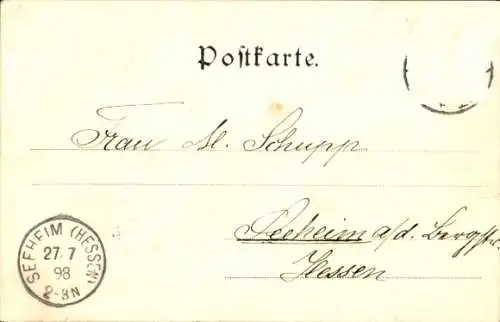 Postkarte.
Frau M. Schupp
Seeheim a/d. Bergstr.
Hessen
SEEHEIM (HESSEN)
27 7
98
2-3N